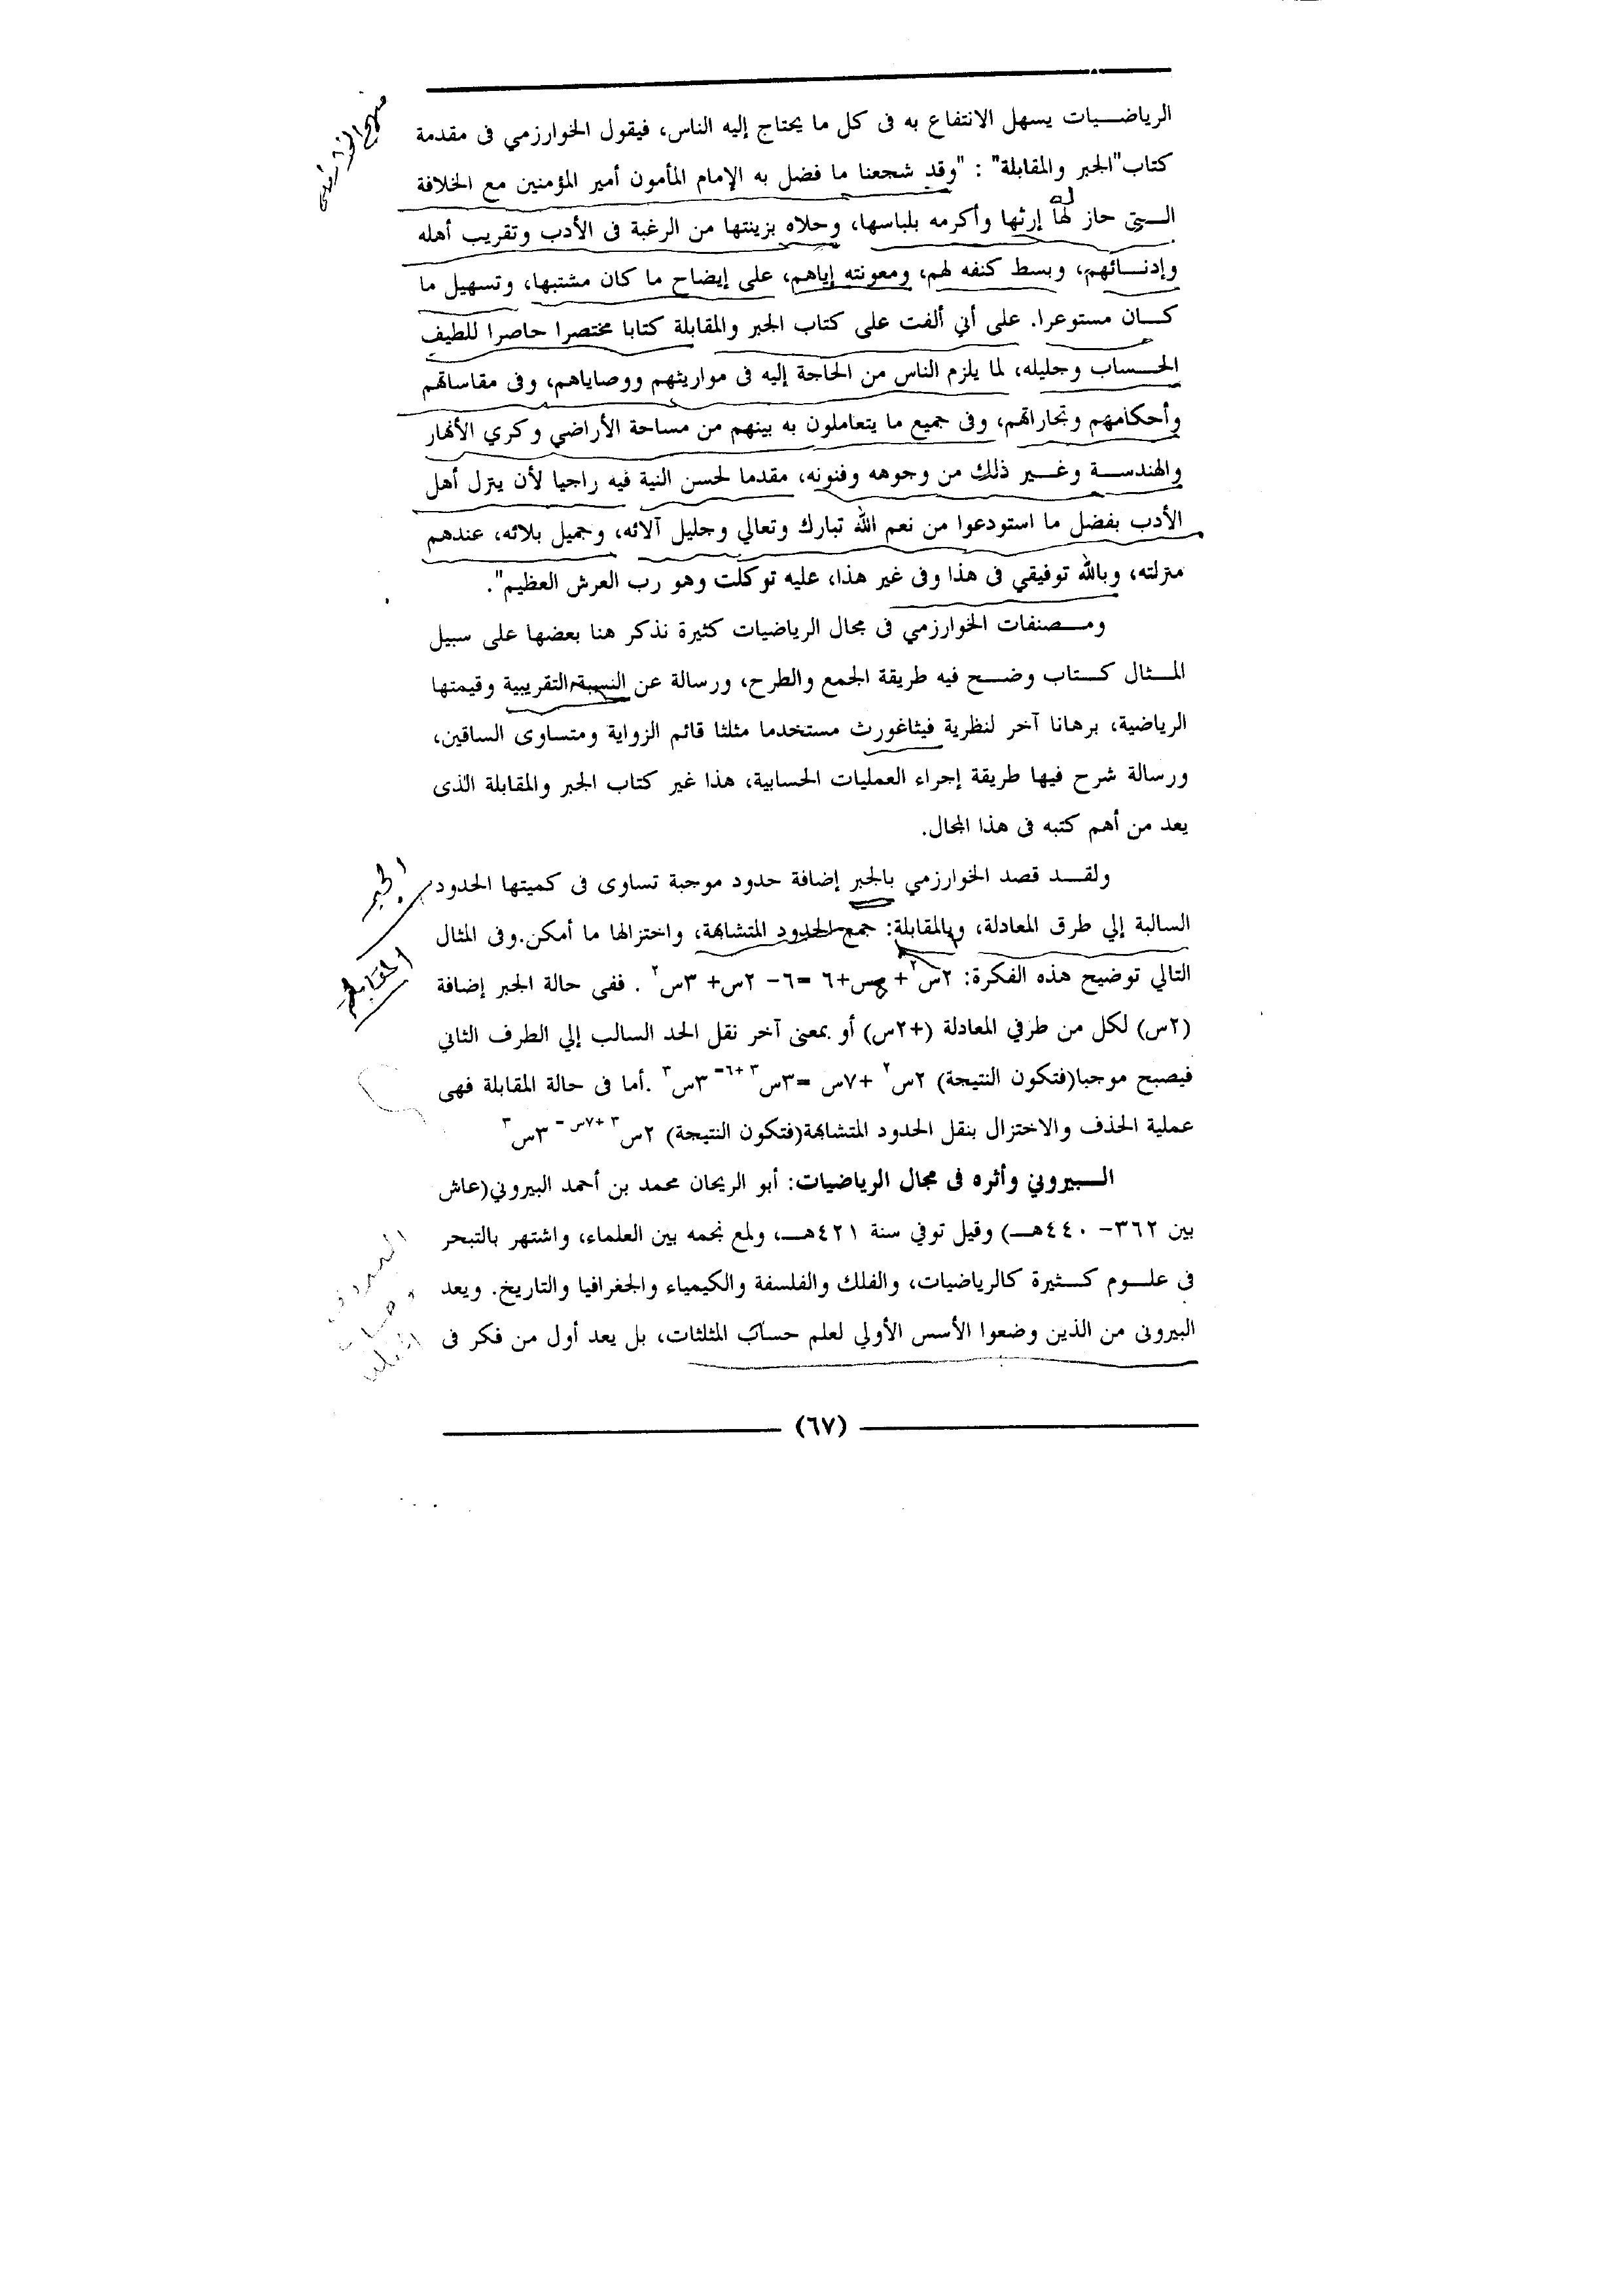 الرياضيات يسهل الانتفاع به فى كل ما يحتاج إليه الناس، فيقول الخوارزمي فى مقدمة
كتاب"الجبر والمقابلة" : "وقد شجعنا ما فضل به الإمام المأمون أمير المؤمنين مع الخلافة
التى حاز لها إرثها وأكرمه بلباسها، وحلاه بزينتها من الرغبة فى الأدب وتقريب أهله
وإدنائهم، وبسط كنفه لهم، ومعونته إياهم، على إيضاح ما كان مشتبها، وتسهيل ما
كان مستوعرا. على أني ألفت على كتاب الجبر والمقابلة كتابا مختصرا حاصرا للطيف
الحساب وجليله، لما يلزم الناس من الحاجة إليه فى مواريثهم ووصاياهم، وفى مقاساتهم
وأحكامهم وتجاراتهم، وفى جميع ما يتعاملون به بينهم من مساحة الأراضي وكري الأنهار
والهندسة وغير ذلك من وجوهه وفنونه، مقدما لحسن النية فيه راجيا لأن ينزل أهل
الأدب بفضل ما استودعوا من نعم الله تبارك وتعالي وجليل آلائه، وجميل بلائه، عندهم
منزلته، وبالله توفيقي فى هذا وفى غير هذا، عليه توكلت وهو رب العرش العظيم".
ومصنفات الخوارزمي فى مجال الرياضيات كثيرة نذكر هنا بعضها على سبيل
المثال كتاب وضح فيه طريقة الجمع والطرح، ورسالة عن النسبة التقريبية وقيمتها
الرياضية، برهانا آخر لنظرية فيثاغورث مستخدما مثلثا قائم الزواية ومتساوى الساقين،
ورسالة شرح فيها طريقة إجراء العمليات الحسابية، هذا غير كتاب الجبر والمقابلة الذى
يعد من أهم كتبه فى هذا المجال.
الجبر
ولقد قصد الخوارزمي بالجبر إضافة حدود موجبة تساوى فى كميتها الحدود
السالبة إلي طرق المعادلة، وبالمقابلة: جمع الحدود المتشابهة، واختزالها ما أمكن.وفى المثال
المقابلة
التالي توضيح هذه الفكرة: ٢س٢+ س+٦ =٦- ٢س+ ٣س٢ . ففى حالة الجبر إضافة
(٢س) لكل من طرفي المعادلة (+٢س) أو بمعنى آخر نقل الحد السالب إلي الطرف الثاني
فيصبح موجبا(فتكون النتيجة) ٢س٢ +٧س =٣س٣ +٦- ٣س٣ .أما فى حالة المقابلة فهى
عملية الحذف والاختزال بنقل الحدود المتشابهة(فتكون النتيجة) ٢س٣ +٧س - ٣س٣
البيروني وأثره فى مجال الرياضيات: أبو الريحان محمد بن أحمد البيروني(عاش
بين ٣٦٢- ٤٤٠هـ) وقيل توفي سنة ٤٢١هـ، ولمع نجمه بين العلماء، واشتهر بالتبحر
فى علوم كثيرة كالرياضيات، والفلك والفلسفة والكيمياء والجغرافيا والتاريخ. ويعد
البيرونى من الذين وضعوا الأسس الأولي لعلم حساب المثلثات، بل يعد أول من فكر فى
(٦٧)